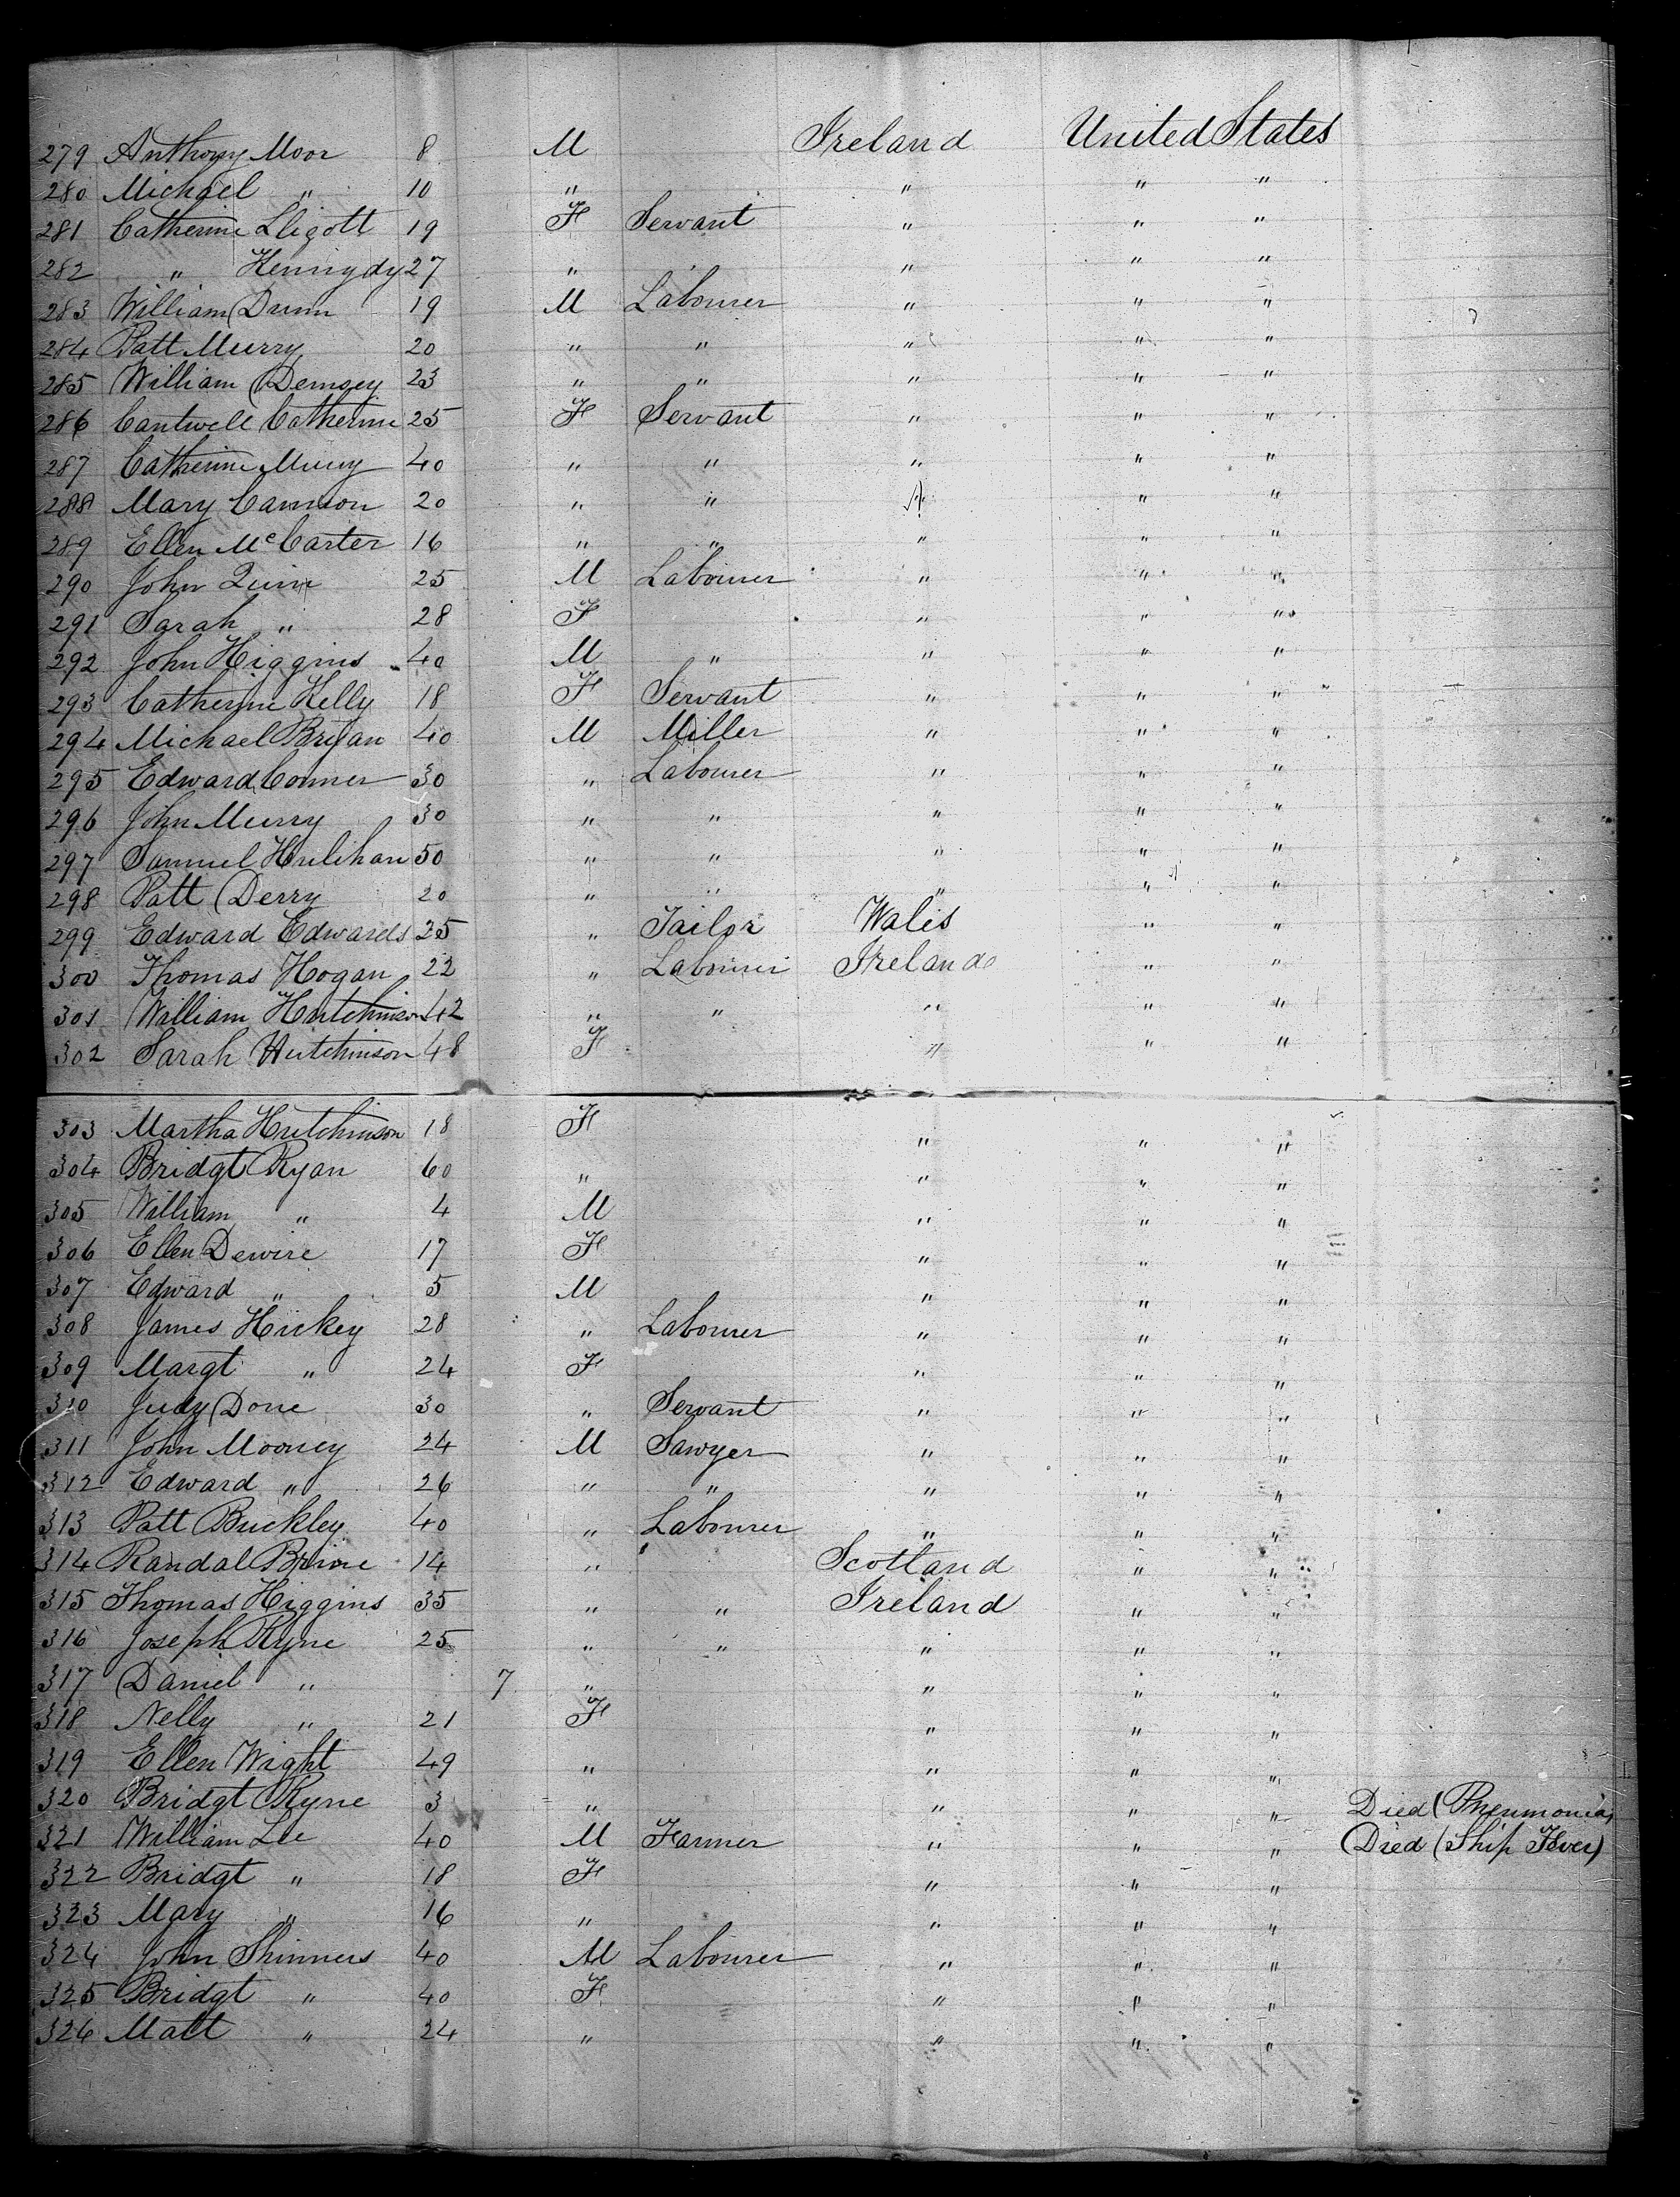 279 Anthony Moor 8 M Ireland United States
280 Michael " 10 " " " "
281 Catherine Lligott 19 F Servant " " "
282 " Hennydy 27 " " " "
283 William Dunn 19 M Labourer " " "
284 Patt Murry 20 " " " " "
285 William Demsey 23 " " " " "
286 Cantwell Catherine 25 F Servant " " "
287 Catherine Murry 40 " " " " "
288 Mary Cannon 20 " " " " "
289 Ellen McCarter 16 " " " " "
290 John Quin 25 M Labourer " " "
291 Sarah " 28 F " " "
292 John Higgins 40 M " " " "
293 Catherine Kelly 18 F Servant " " "
294 Michael Bryan 40 M Miller " " "
295 Edward Conner 30 " Labourer " " "
296 John Murry 30 " " " " "
297 Samuel Hulihan 50 " " " " "
298 Patt Derry 20 " " " " "
299 Edward Edwards 25 " Tailor Wales " "
300 Thomas Hogan 22 " Labourer Ireland " "
301 William Hutchinson 42 " " " " "
302 Sarah Hutchinson 48 F " " "
303 Martha Hutchinson 18 F " " "
304 Bridgt Ryan 60 " " " "
305 William " 4 M " " "
306 Ellen Dewire 17 F " " "
307 Edward " 5 M " " "
308 James Hickey 28 " Labourer " " "
309 Margt " 24 F " " "
310 Judy Done 30 " Servant " " "
311 John Mooney 24 M Sawyer " " "
312 Edward " 26 " " " " "
313 Patt Buckley 40 " Labourer " " "
314 Randal Brine 14 " Scotland " "
315 Thomas Higgins 35 " " Ireland " "
316 Joseph Ryne 25 " " " " "
317 Daniel " 7 " " " "
318 Nelly " 21 F " " "
319 Ellen Wight 49 " " " "
320 Bridgt Ryne 3 " " " " Died (Pneumonia)
321 William Lee 40 M Farmer " " " Died (Ship Fever)
322 Bridgt " 18 F " " "
323 Mary " 16 " " " "
324 John Shinners 40 M Labourer " " "
325 Bridgt " 40 F " " "
326 Matt " 24 " " " "